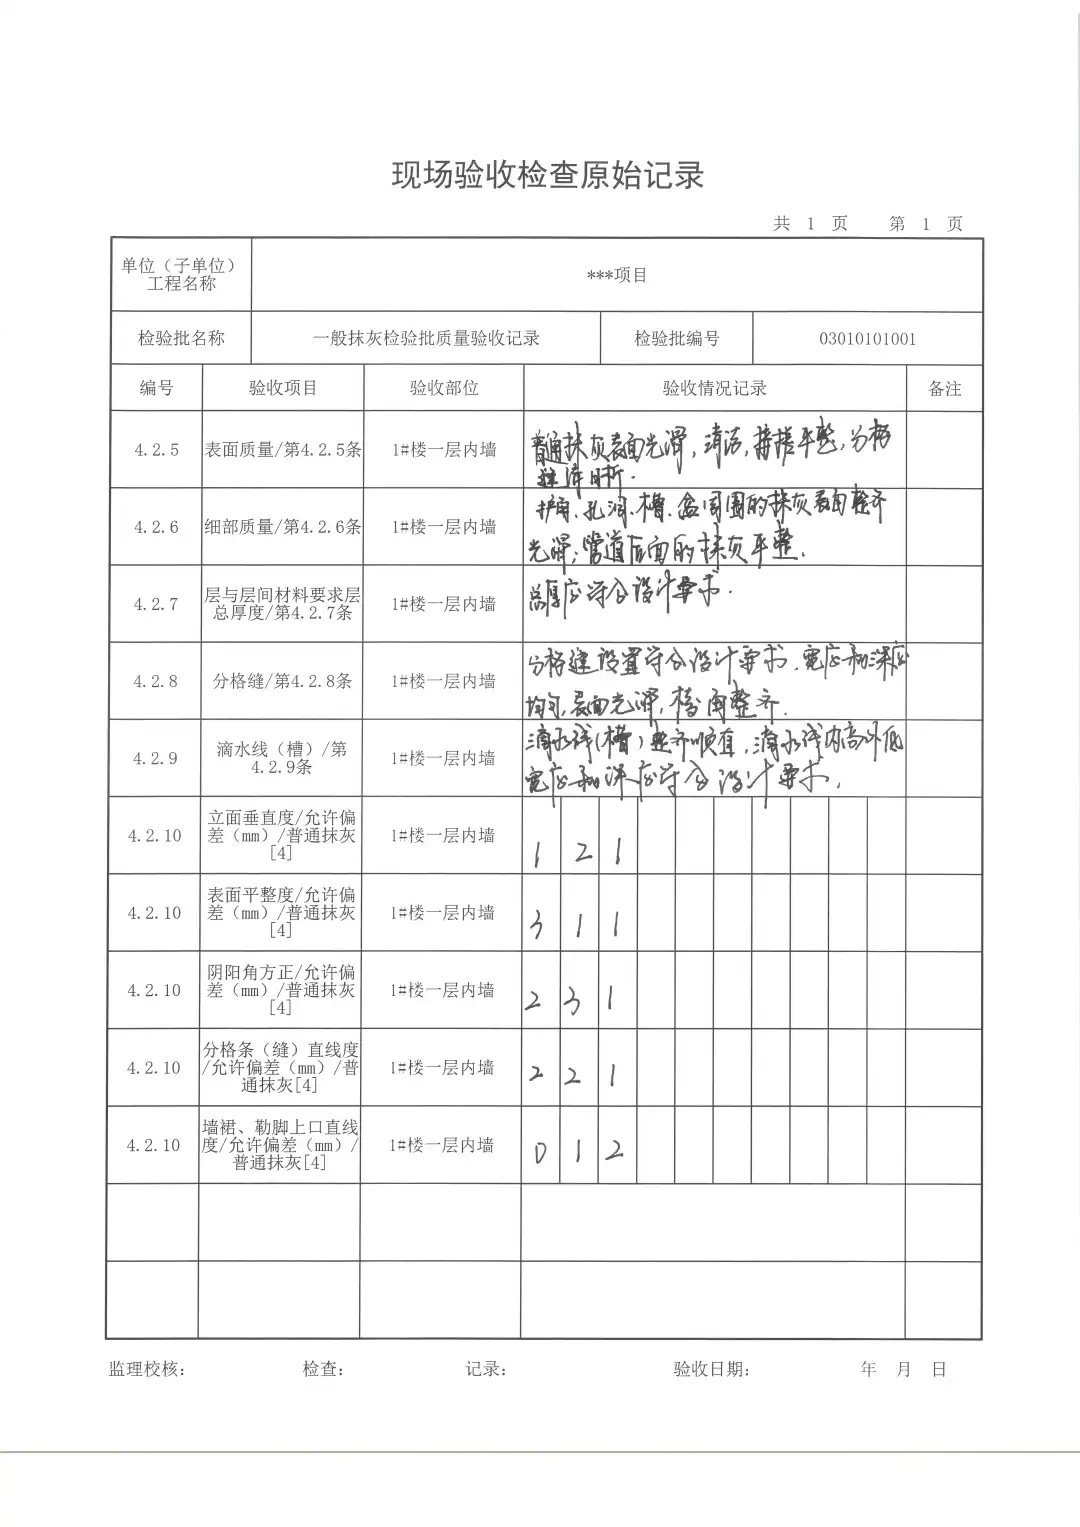 现场验收检查原始记录
共 1 页 第 1 页
单位（子单位）
工程名称
***项目
检验批名称 一般抹灰检验批质量验收记录 检验批编号 03010101001
编号 验收项目 验收部位 验收情况记录 备注
4.2.5 表面质量/第4.2.5条 1#楼一层内墙
普通抹灰表面光滑，清洁，接搓平整，分格
缝清晰．
4.2.6 细部质量/第4.2.6条 1#楼一层内墙
护角、孔洞、槽、盒周围的抹灰表面整齐
光滑；管道后面的抹灰平整．
4.2.7
层与层间材料要求层
总厚度/第4.2.7条
1#楼一层内墙
总厚应符合设计要求．
4.2.8 分格缝/第4.2.8条 1#楼一层内墙
分格缝设置符合设计要求，宽度和深度
均匀，表面光滑，棱角整齐．
4.2.9
滴水线（槽）/第
4.2.9条
1#楼一层内墙
滴水线(槽)整齐顺直，滴水线内高外低
宽度和深度符合设计要求．
4.2.10
立面垂直度/允许偏
差（mm）/普通抹灰
[4]
1#楼一层内墙
1 2 1
4.2.10
表面平整度/允许偏
差（mm）/普通抹灰
[4]
1#楼一层内墙
3 1 1
4.2.10
阴阳角方正/允许偏
差（mm）/普通抹灰
[4]
1#楼一层内墙
2 3 1
4.2.10
分格条（缝）直线度
/允许偏差（mm）/普
通抹灰[4]
1#楼一层内墙
2 2 1
4.2.10
墙裙、勒脚上口直线
度/允许偏差（mm）/
普通抹灰[4]
1#楼一层内墙
0 1 2
监理校核： 检查： 记录： 验收日期： 年 月 日